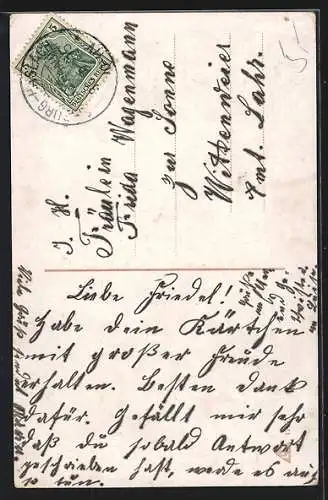 I. H.
Fräulein
Frieda Wagenmann
zur Sonne
Wittenweier
Amt. Lahr.
5-
Liebe Friedel!
Habe dein Kärtchen
mit großer Freude
erhalten. Besten Dank
dafür. Gefällt mir sehr
daß du sobald Antwort
geschrieben hast, werde es auch
so tun.
Viele Grüße